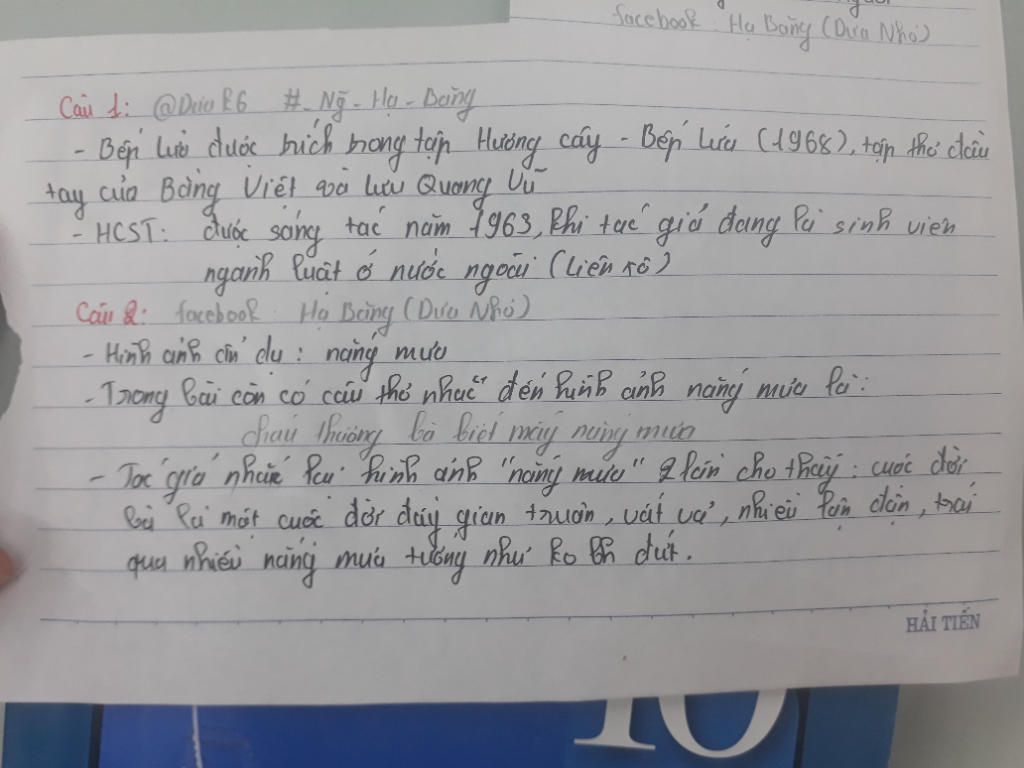 facebook: Hạ Băng (Dưa Nhỏ)
Câu 1: @Dưa R6 #_Ng̃_Hạ_Băng
- Bếp lửa được trích trong tập Hương cây - Bếp lửa (1968), tập thơ đầu
tay của Bằng Việt và Lưu Quang Vũ
- HCST: được sáng tác năm 1963, khi tác giả đang là sinh viên
ngành luật ở nước ngoài (Liên Xô)
Câu 2: facebook: Hạ Băng (Dưa Nhỏ)
- Hình ảnh ẩn dụ: nắng mưa
- Trong bài còn có câu thơ nhắc đến hình ảnh nắng mưa là:
cháu thương bà biết mấy nắng mưa
- Tác giả nhắc lại hình ảnh "nắng mưa" 2 lần cho thấy: cuộc đời
bà là một cuộc đời đầy gian truân, vất vả, nhiều lận đận, trải
qua nhiều nắng mưa tưởng như ko bh dứt.
HẢI TIẾN
10